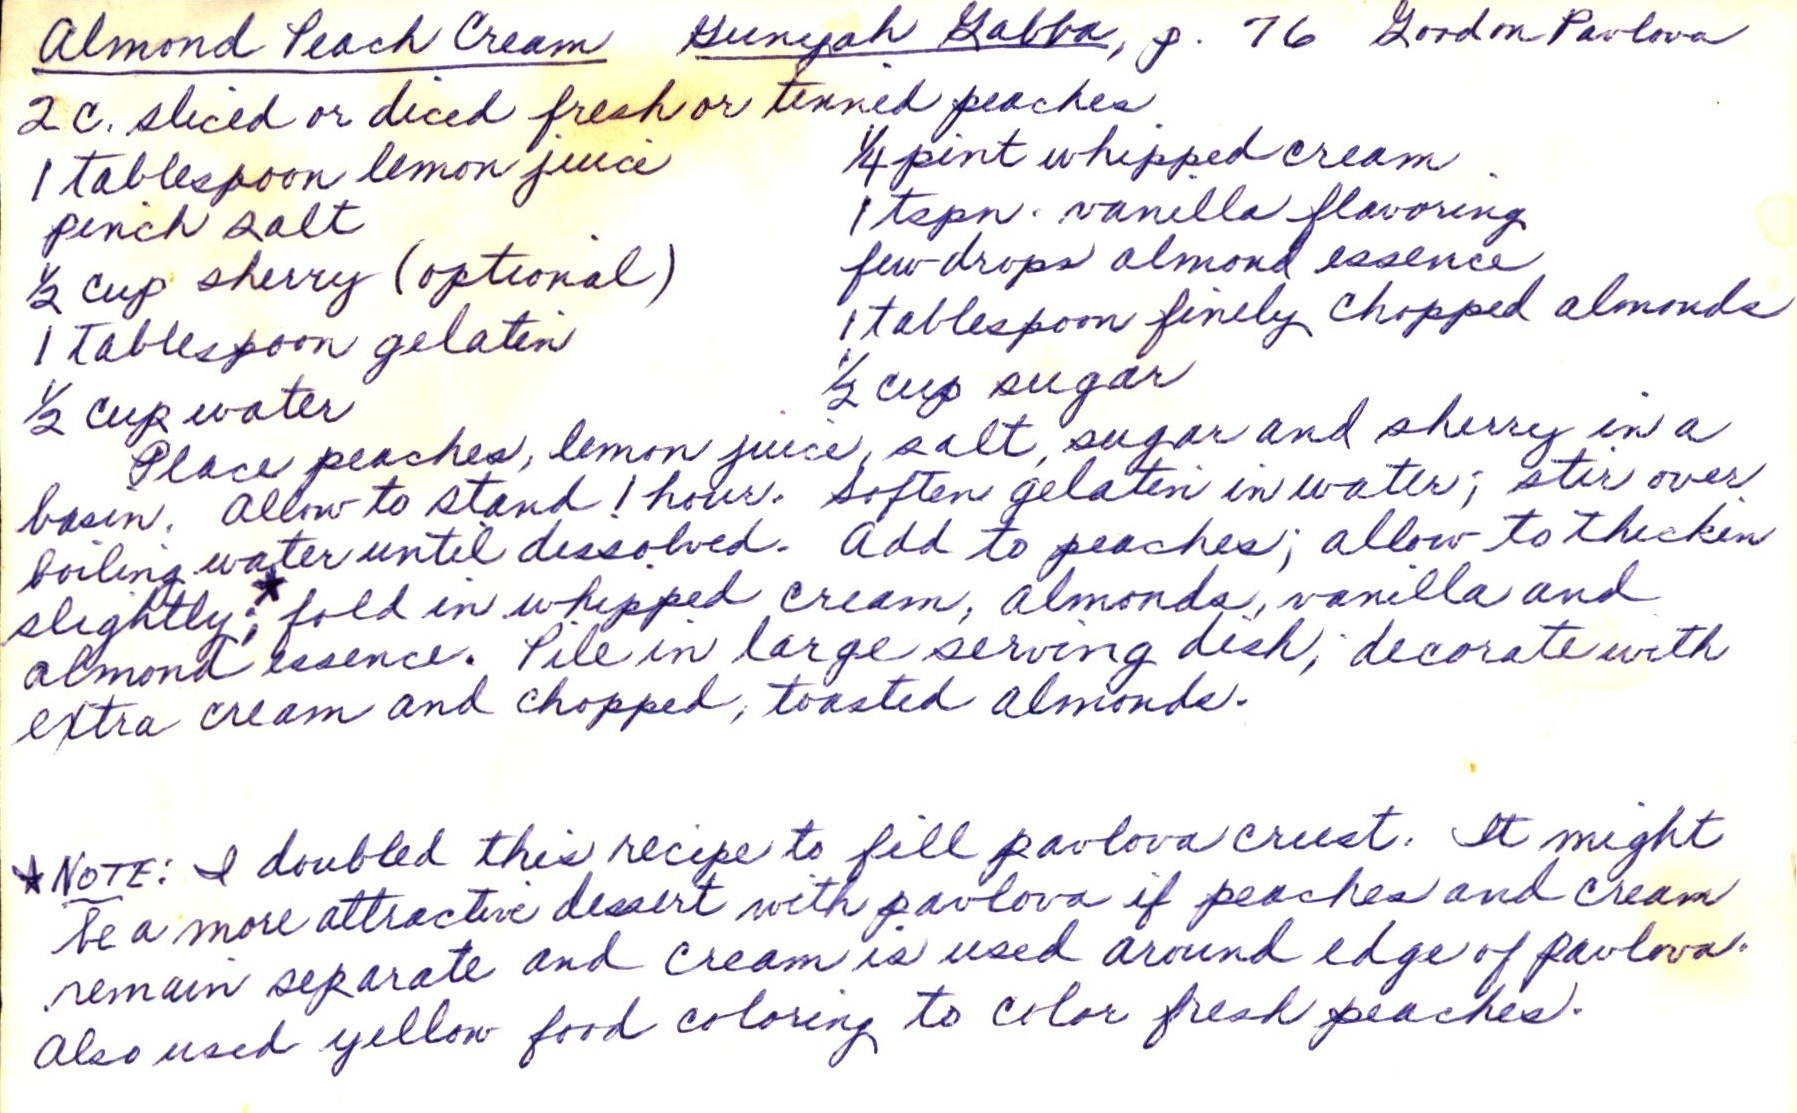 Almond Peach Cream Gunyah Gabba, p. 76 Gordon Pavlova
2 c. sliced or diced fresh or tinned peaches
1 tablespoon lemon juice
pinch salt
½ cup sherry (optional)
1 tablespoon gelatin
½ cup water
¼ pint whipped cream
1 tspn. vanilla flavoring
few drops almond essence
1 tablespoon finely chopped almonds
½ cup sugar
Place peaches, lemon juice, salt, sugar and sherry in a
basin. Allow to stand 1 hour. Soften gelatin in water; stir over
boiling water until dissolved. Add to peaches; allow to thicken
slightly;* fold in whipped cream, almonds, vanilla and
almond essence. Pile in large serving dish; decorate with
extra cream and chopped, toasted almonds.
* NOTE: I doubled this recipe to fill pavlova crust. It might
be a more attractive dessert with pavlova if peaches and cream
remain separate and cream is used around edge of pavlova.
Also used yellow food coloring to color fresh peaches.